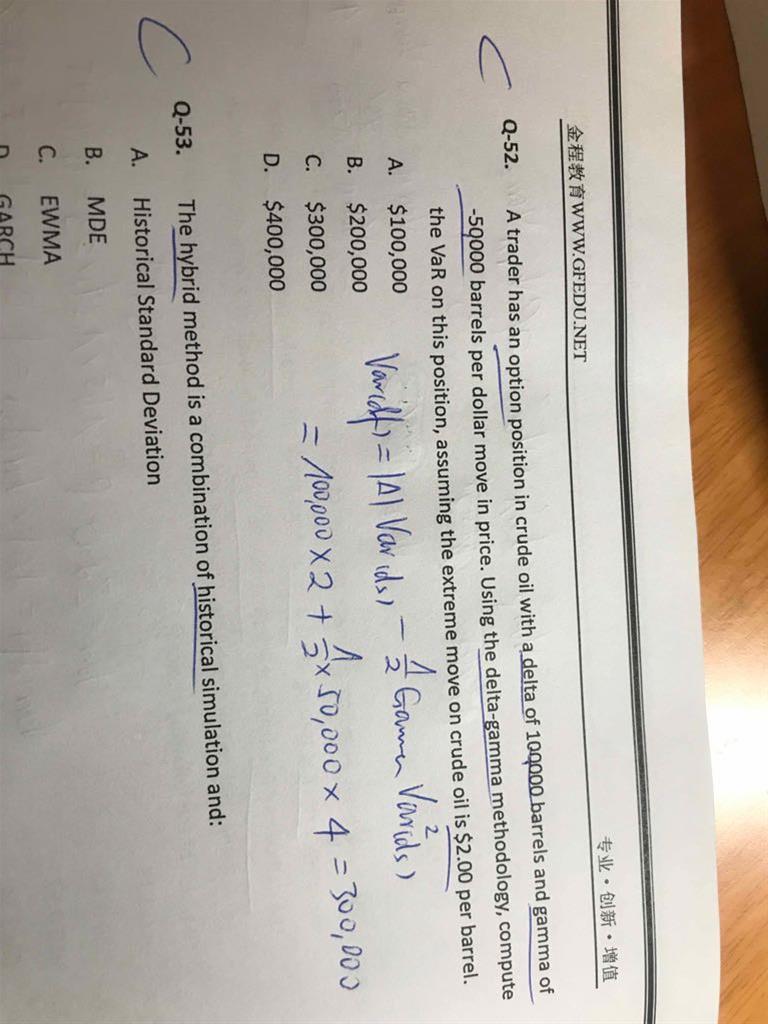 金程教育WWW.GFEDU.NET 专业·创新·增值
Q-52. A trader has an option position in crude oil with a delta of 100000 barrels and gamma of
-50000 barrels per dollar move in price. Using the delta-gamma methodology, compute
the VaR on this position, assuming the extreme move on crude oil is $2.00 per barrel.
A. $100,000
B. $200,000
C. $300,000
D. $400,000
Var(df) = |Δ| Var(ds) - 1/2 Gamma Var²(ds)
= 100,000 × 2 + 1/2 × 50,000 × 4 = 300,000
C
Q-53. The hybrid method is a combination of historical simulation and:
A. Historical Standard Deviation
B. MDE
C. EWMA
D. GARCH
C